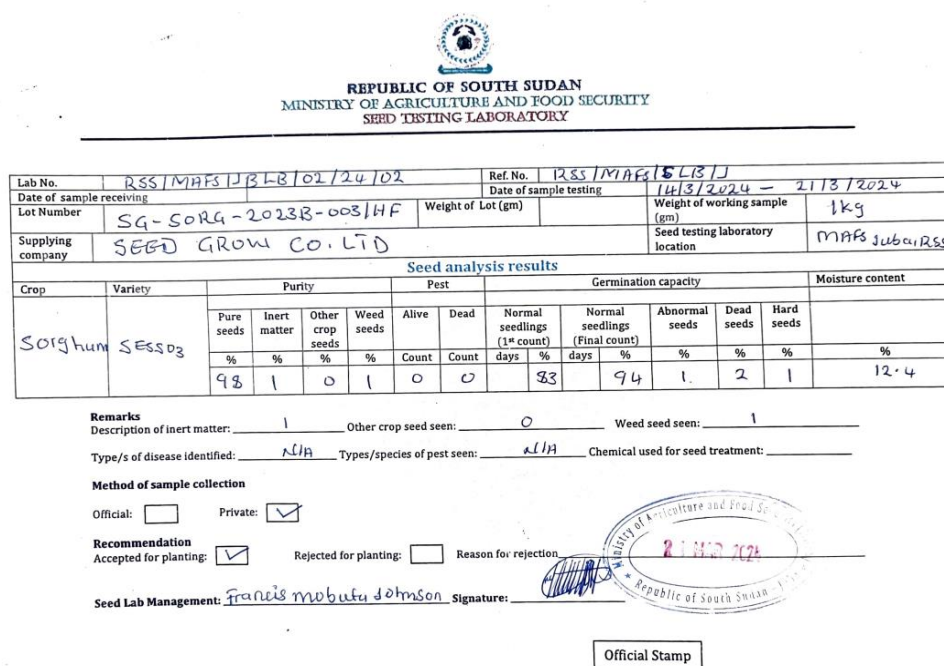 REPUBLIC OF SOUTH SUDAN
MINISTRY OF AGRICULTURE AND FOOD SECURITY
SEED TESTING LABORATORY
Lab No. RSS/MAFS/JBLB/02/24/02 Ref. No. RSS/MAFS/SLB/J
Date of sample receiving Date of sample testing 14/3/2024 - 21/3/2024
Lot Number SG-SORG-2023B-003/HF Weight of Lot (gm) Weight of working sample (gm) 1kg
Supplying company SEED GROW CO. LTD Seed testing laboratory location MAFS Juba, RSS
Seed analysis results
Crop Variety Purity Pest Germination capacity Moisture content
Pure seeds Inert matter Other crop seeds Weed seeds Alive Dead Normal seedlings (1st count) Normal seedlings (Final count) Abnormal seeds Dead seeds Hard seeds
% % % % Count Count days % days % % % % %
Sorghum SESS03 98 1 0 1 0 0 83 94 1. 2 1 12.4
Remarks
Description of inert matter: 1 Other crop seed seen: 0 Weed seed seen: 1
Type/s of disease identified: N/A Types/species of pest seen: N/A Chemical used for seed treatment:
Method of sample collection
Official: Private: ✓
Recommendation
Accepted for planting: ✓ Rejected for planting: Reason for rejection
Ministry of Agriculture and Food
21 MAR 202
Republic of South Sudan
Seed Lab Management: Francis mobutu Johnson Signature:
Official Stamp